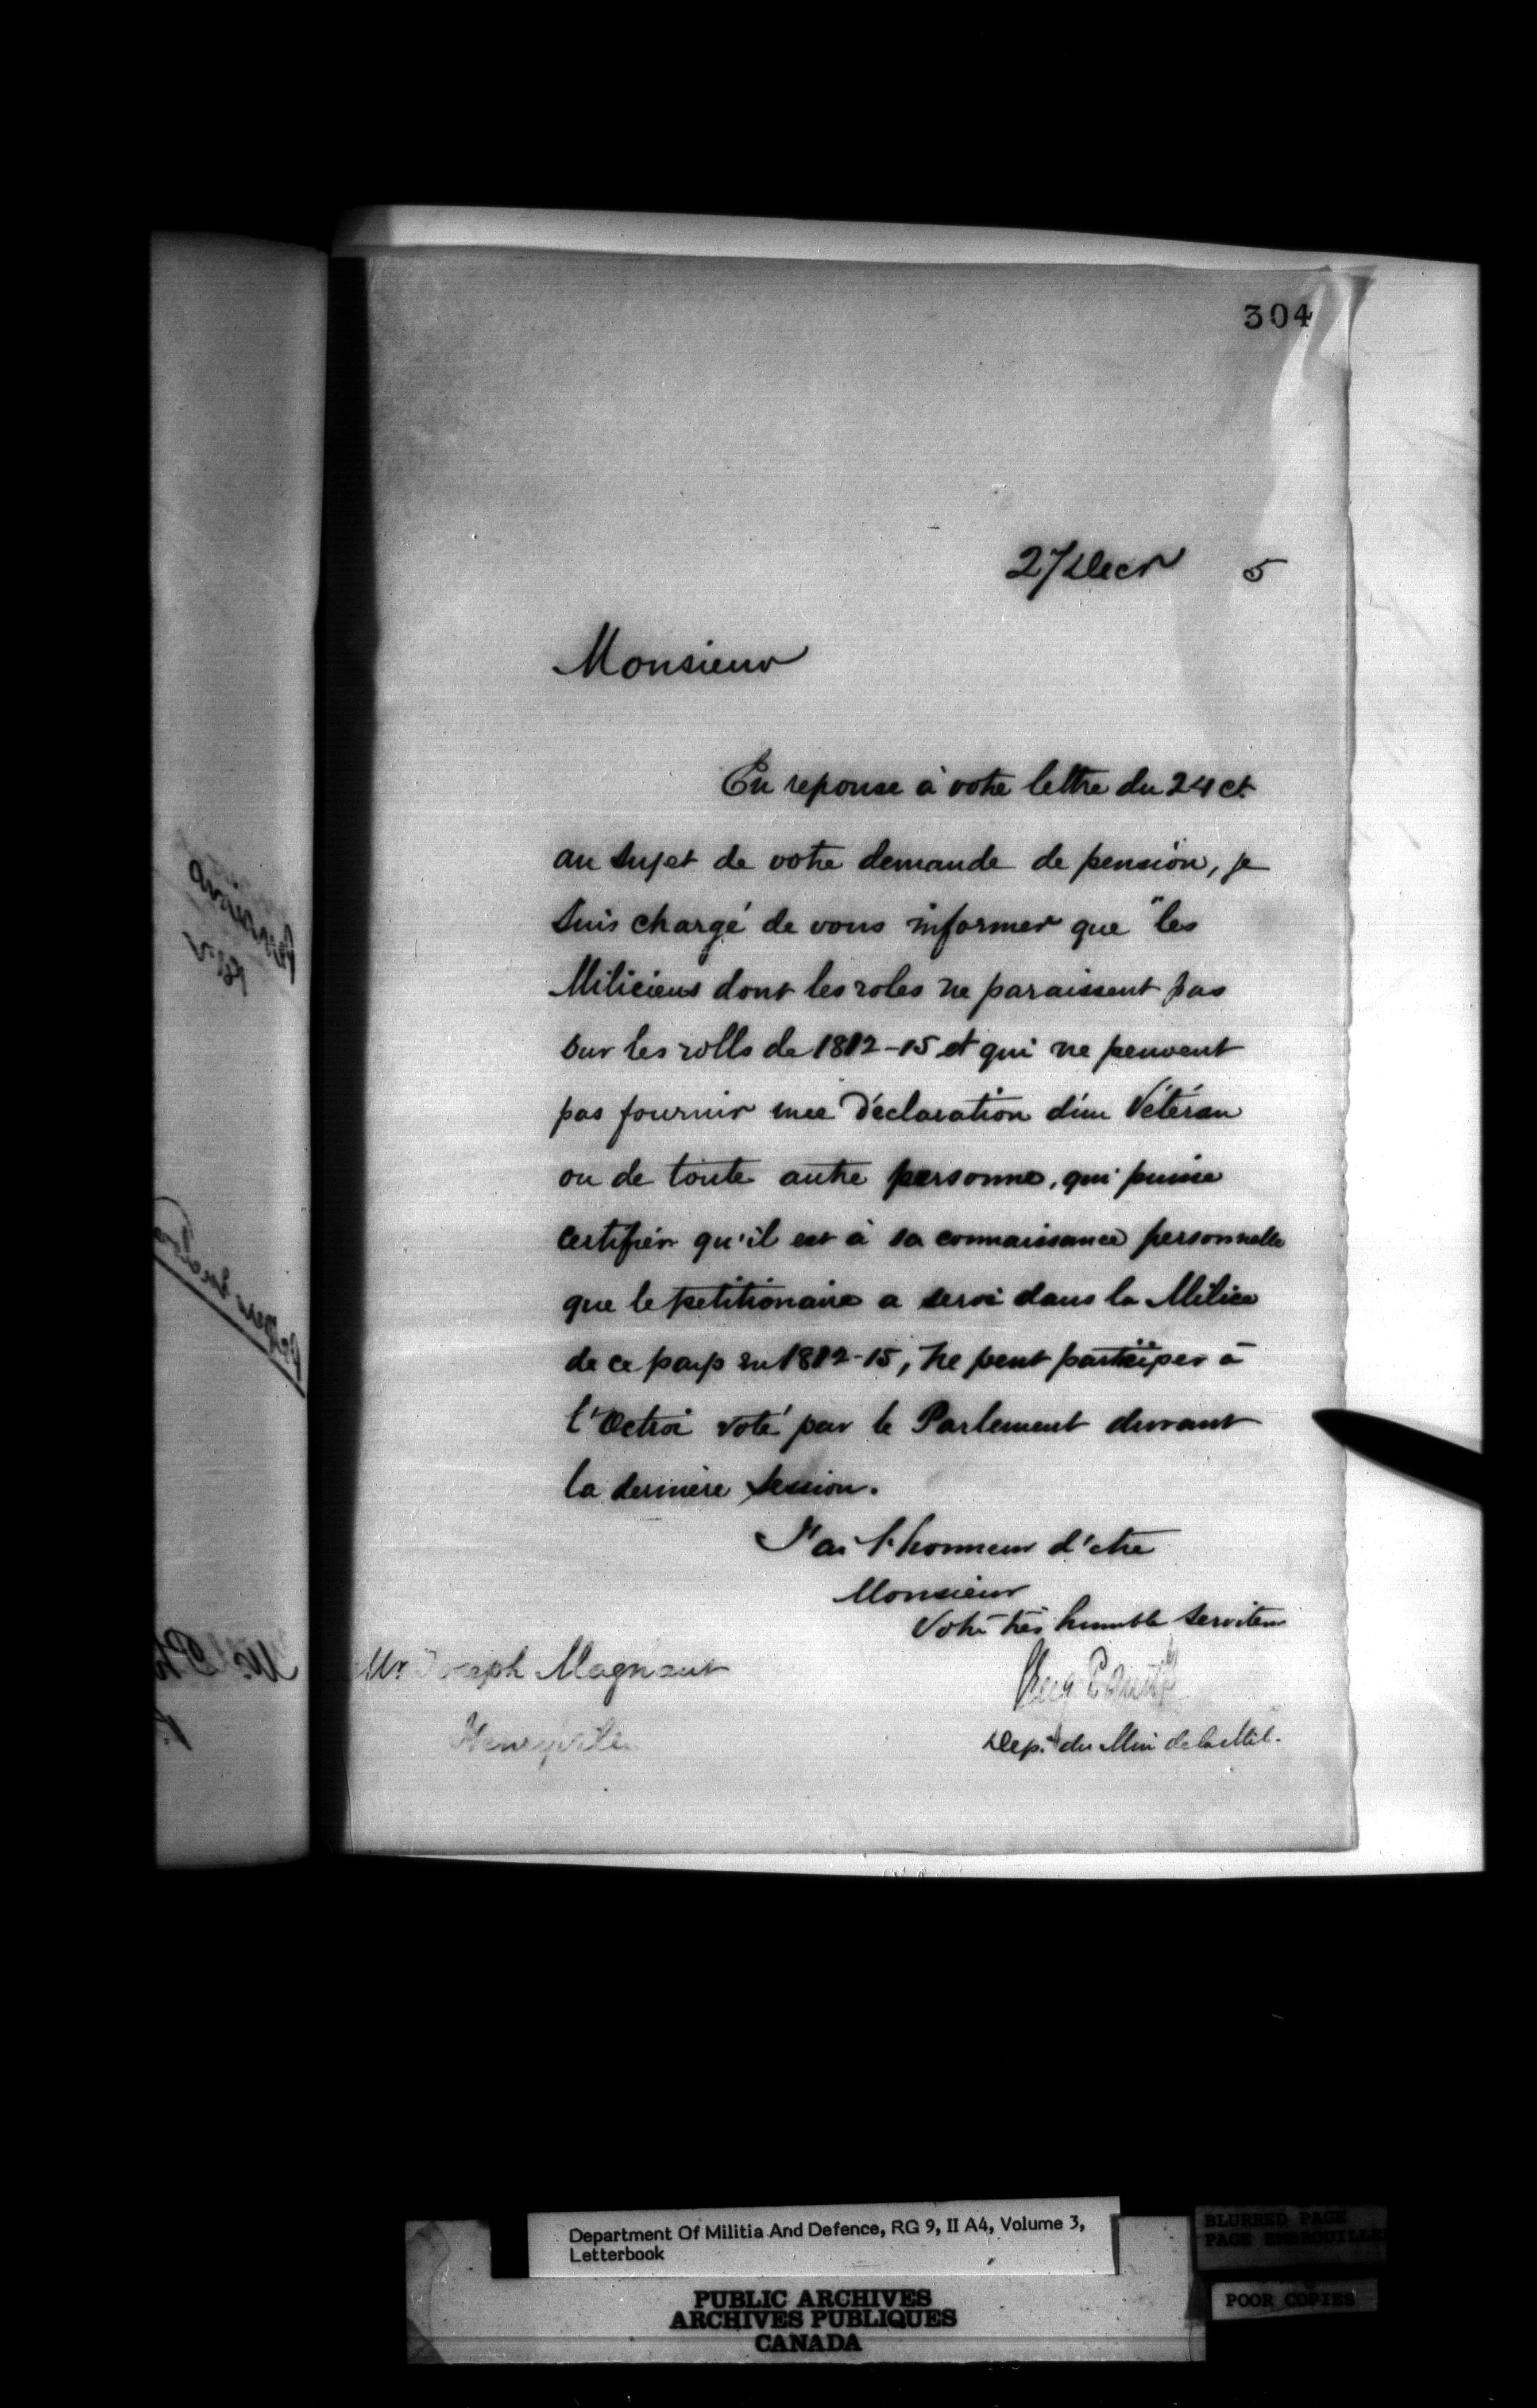 304
27 Decr 5
Monsieur
En reponse à votre lettre du 24 ct.
au sujet de votre demande de pension, je
suis chargé de vous informer que "les
Miliciens dont les roles ne paraissent pas
sur les rolls de 1812-15 et qui ne peuvent
pas fournir une Déclaration d'un Vétéran
ou de toute autre personne, qui puisse
certifier qu'il est à sa connaissance personnelle
que le petitionaire a servi dans la Milice
de ce pays en 1812-15, ne peut participer à
l'Octroi voté par le Parlement durant
la dernière session.
J'ai l'honneur d'etre
Monsieur
Votre très humble serviteur
Mr Joseph Magnant
Henryville
Dep. du Min de la Mil.
Department Of Militia And Defence, RG 9, II A4, Volume 3,
Letterbook
PUBLIC ARCHIVES
ARCHIVES PUBLIQUES
CANADA
BLURRED PAGE
PAGE EMBROUILLE
POOR COPIES